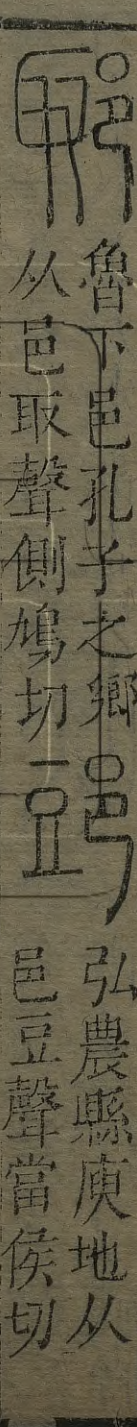 郰
魯下邑孔子之鄉
从邑取聲側鳩切
郖
弘農縣庾地从
邑豆聲當侯切